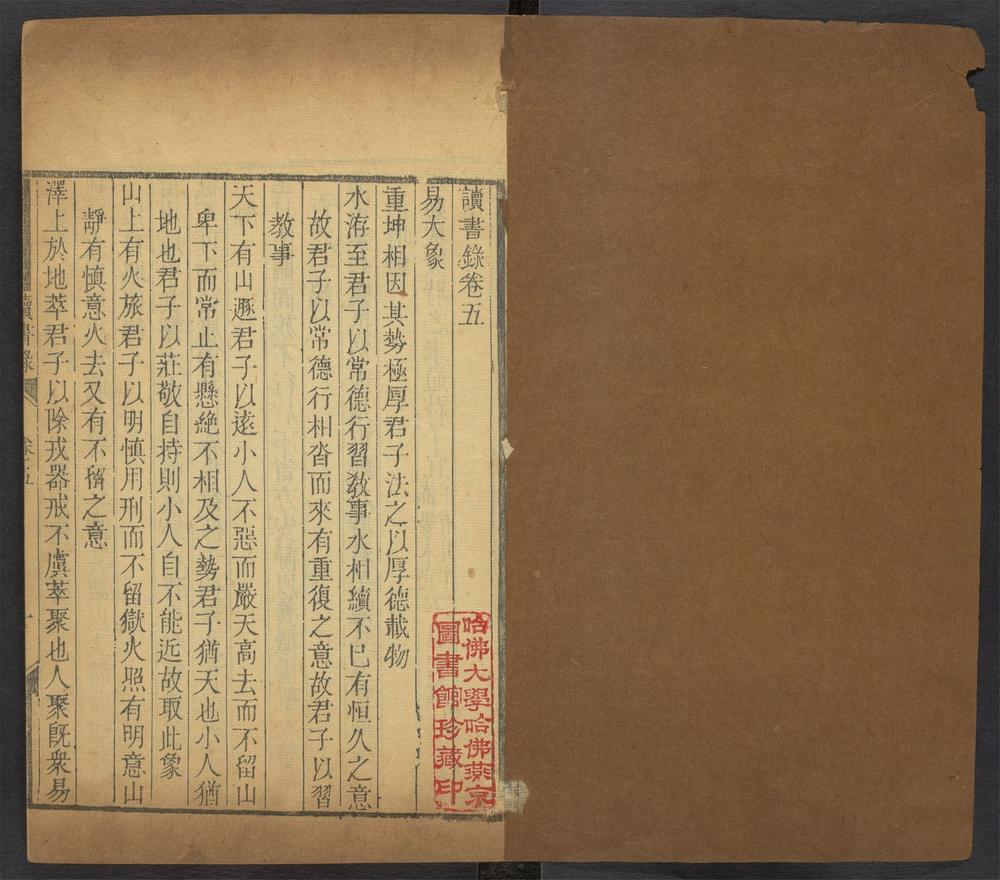 讀書錄卷五
易大象
重坤相因其勢極厚君子法之以厚德載物
水洊至君子以常德行習敎事水相續不已有恒久之意
故君子以常德行相沓而來有重復之意故君子以習
敎事
天下有山遯君子以遠小人不惡而嚴天高去而不留山
卑下而常止有懸絶不相及之勢君子猶天也小人猶
地也君子以莊敬自持則小人自不能近故取此象
山上有火旅君子以明慎用刑而不留獄火照有明意山
靜有慎意火去又有不留之意
澤上於地萃君子以除戎器戒不虞萃聚也人聚旣衆易
讀書錄
卷五
一
哈佛大學哈佛燕京
圖書館珍藏印